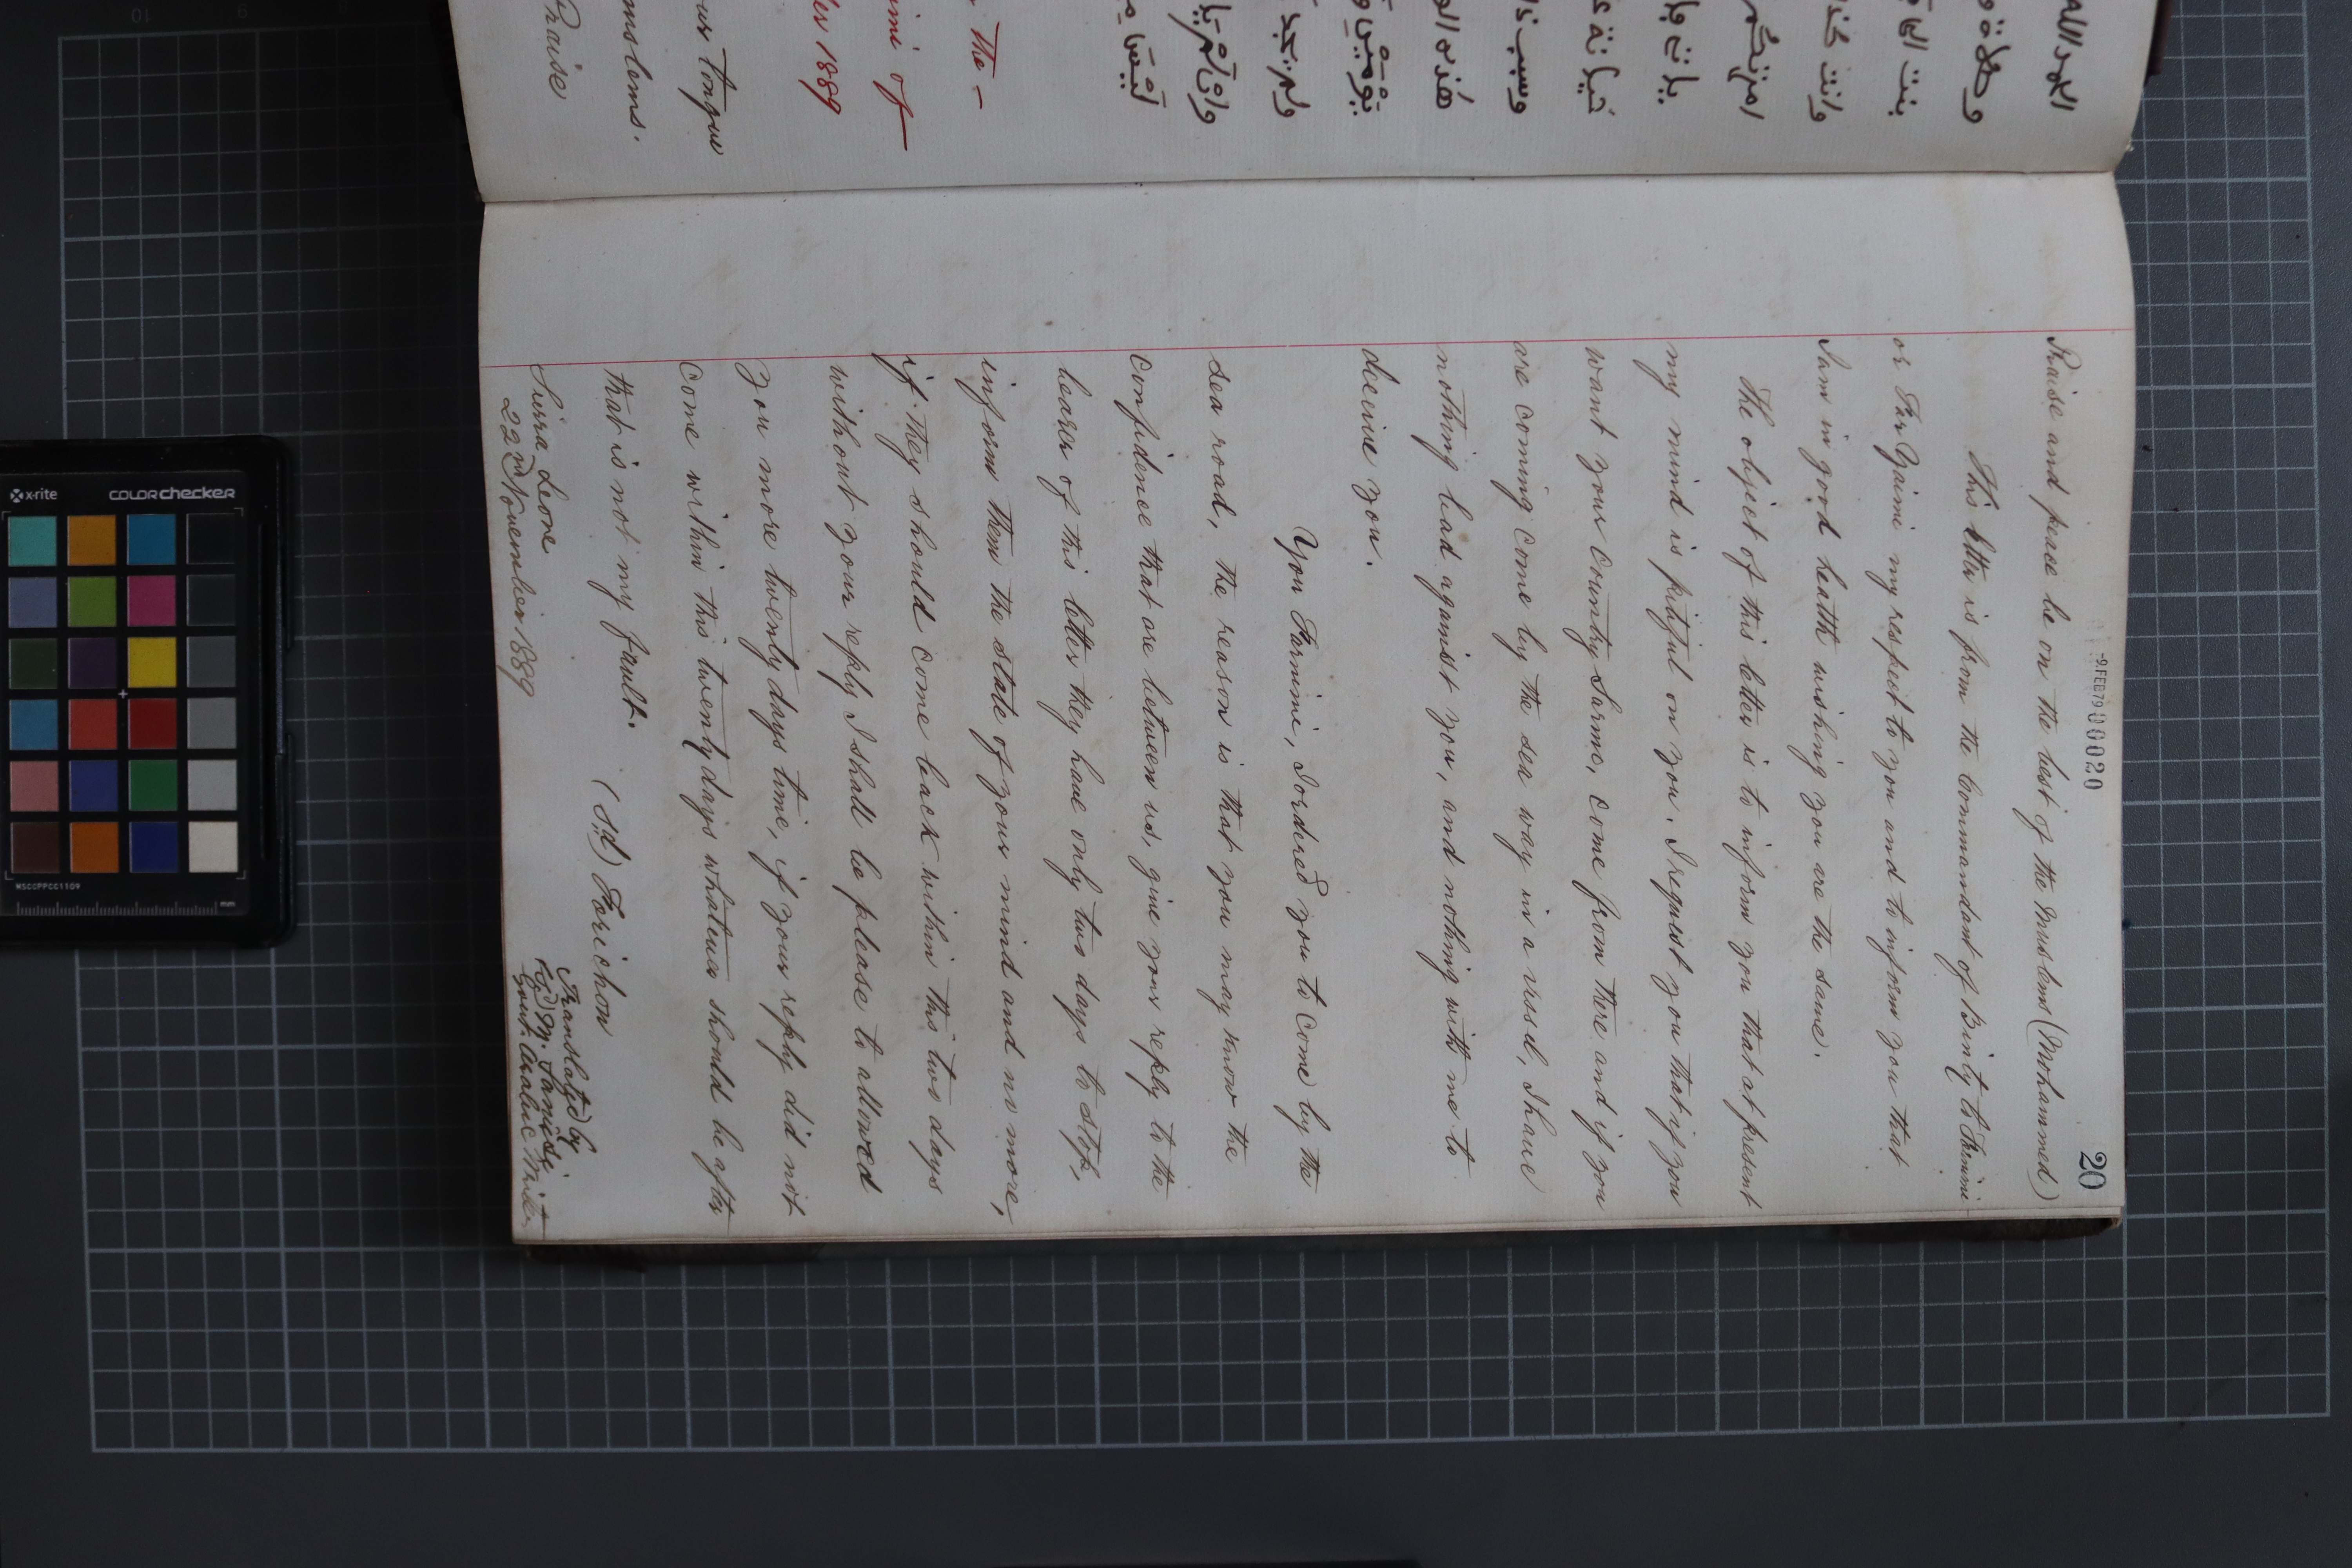 -9.FEB79 000020
20
Praise and peace be on the best of the Muslems (Mohammed)
This letter is from the Commandant of Binty to
or my respect to you and to inform you that
I am in good health wishing you are the same.
The object of this letter is to inform you that at present
my mind is pitiful on you. I request you that if you
want your country Sarmo, come from there and if you
are coming come by the sea way in a vessel, I have
nothing bad against you, and nothing with me to
decieve you.
You Farmini, I ordered you to come by the
sea road, the reason is that you may know the
confidence that are between us, give your reply to the
bearer of this letter they have only two days to stop,
inform them the state of your mind and no more,
if they should come back within this two days
without your reply I shall be please to allowed
you more twenty days time, if your reply did not
come within this twenty days whatever should be after
that is not my fault.
(Sd) Forichon
Sierra Leone
22nd November 1889
Translated by
(Sgd) M. Sanusi
Govt. Arabic Writer
the -
imi of
er 1889
our tongue
muslems.
Praise
الحمد الله
بنت
وانت
وسبب
هذه
ولم تجد